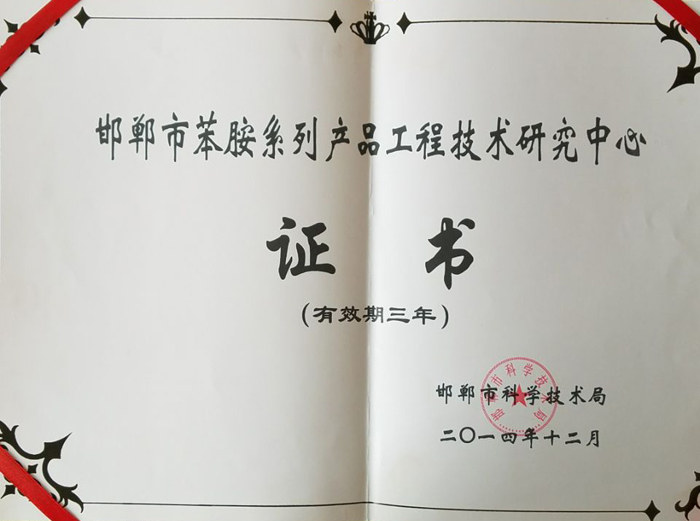 邯郸市苯胺系列产品工程技术研究中心
证书
(有效期三年)
邯郸市科学技术局
邯郸市科学技术局
二〇一四年十二月